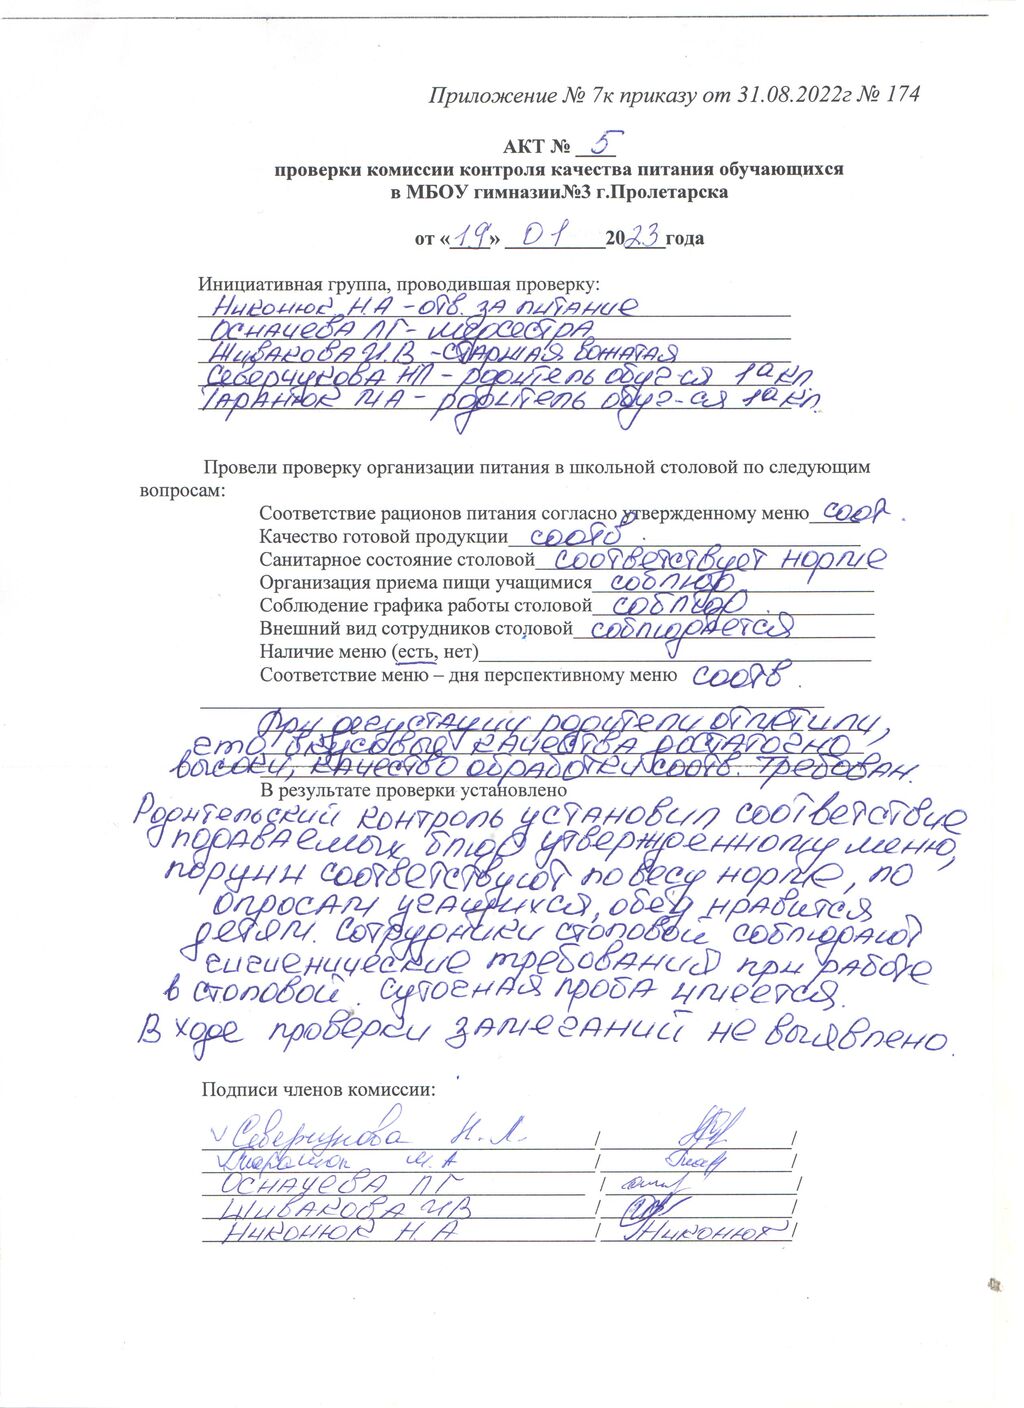 Приложение № 7к приказу от 31.08.2022г № 174
АКТ № 5
проверки комиссии контроля качества питания обучающихся
в МБОУ гимназии№3 г.Пролетарска
от «19» 01 2023 года
Инициативная группа, проводившая проверку:
Никонюк Н.А - отв. за питание
Осначева ЛГ - медсестра
Шивакова И.В - старшая вожатая
Северчукова НЛ - родитель обуч-ся 1а кл.
Таранюк МА - родитель обуч-ся 1а кл.
Провели проверку организации питания в школьной столовой по следующим
вопросам:
Соответствие рационов питания согласно утвержденному меню соот.
Качество готовой продукции соотв.
Санитарное состояние столовой соответствует норме
Организация приема пищи учащимися соблюд
Соблюдение графика работы столовой соблюд.
Внешний вид сотрудников столовой соблюдается
Наличие меню (есть, нет)
Соответствие меню – дня перспективному меню соотв.
При дегустации родители отметили,
что вкусовые качества достаточно
высоки, качество обработки соотв. требован.
В результате проверки установлено
Родительский контроль установил соответствие
подаваемых блюд утвержденному меню,
порции соответствуют по весу норме, по
опросам учащихся, обед нравится
детям. Сотрудники столовой соблюдают
гигиенические требования при работе
в столовой. Суточная проба имеется.
В ходе проверки замечаний не выявлено.
Подписи членов комиссии:
Северчукова Н.Л. /
Таранюк М.А / Тар /
Осначева ЛГ /
Шивакова ИВ /
Никонюк Н.А / Никонюк /